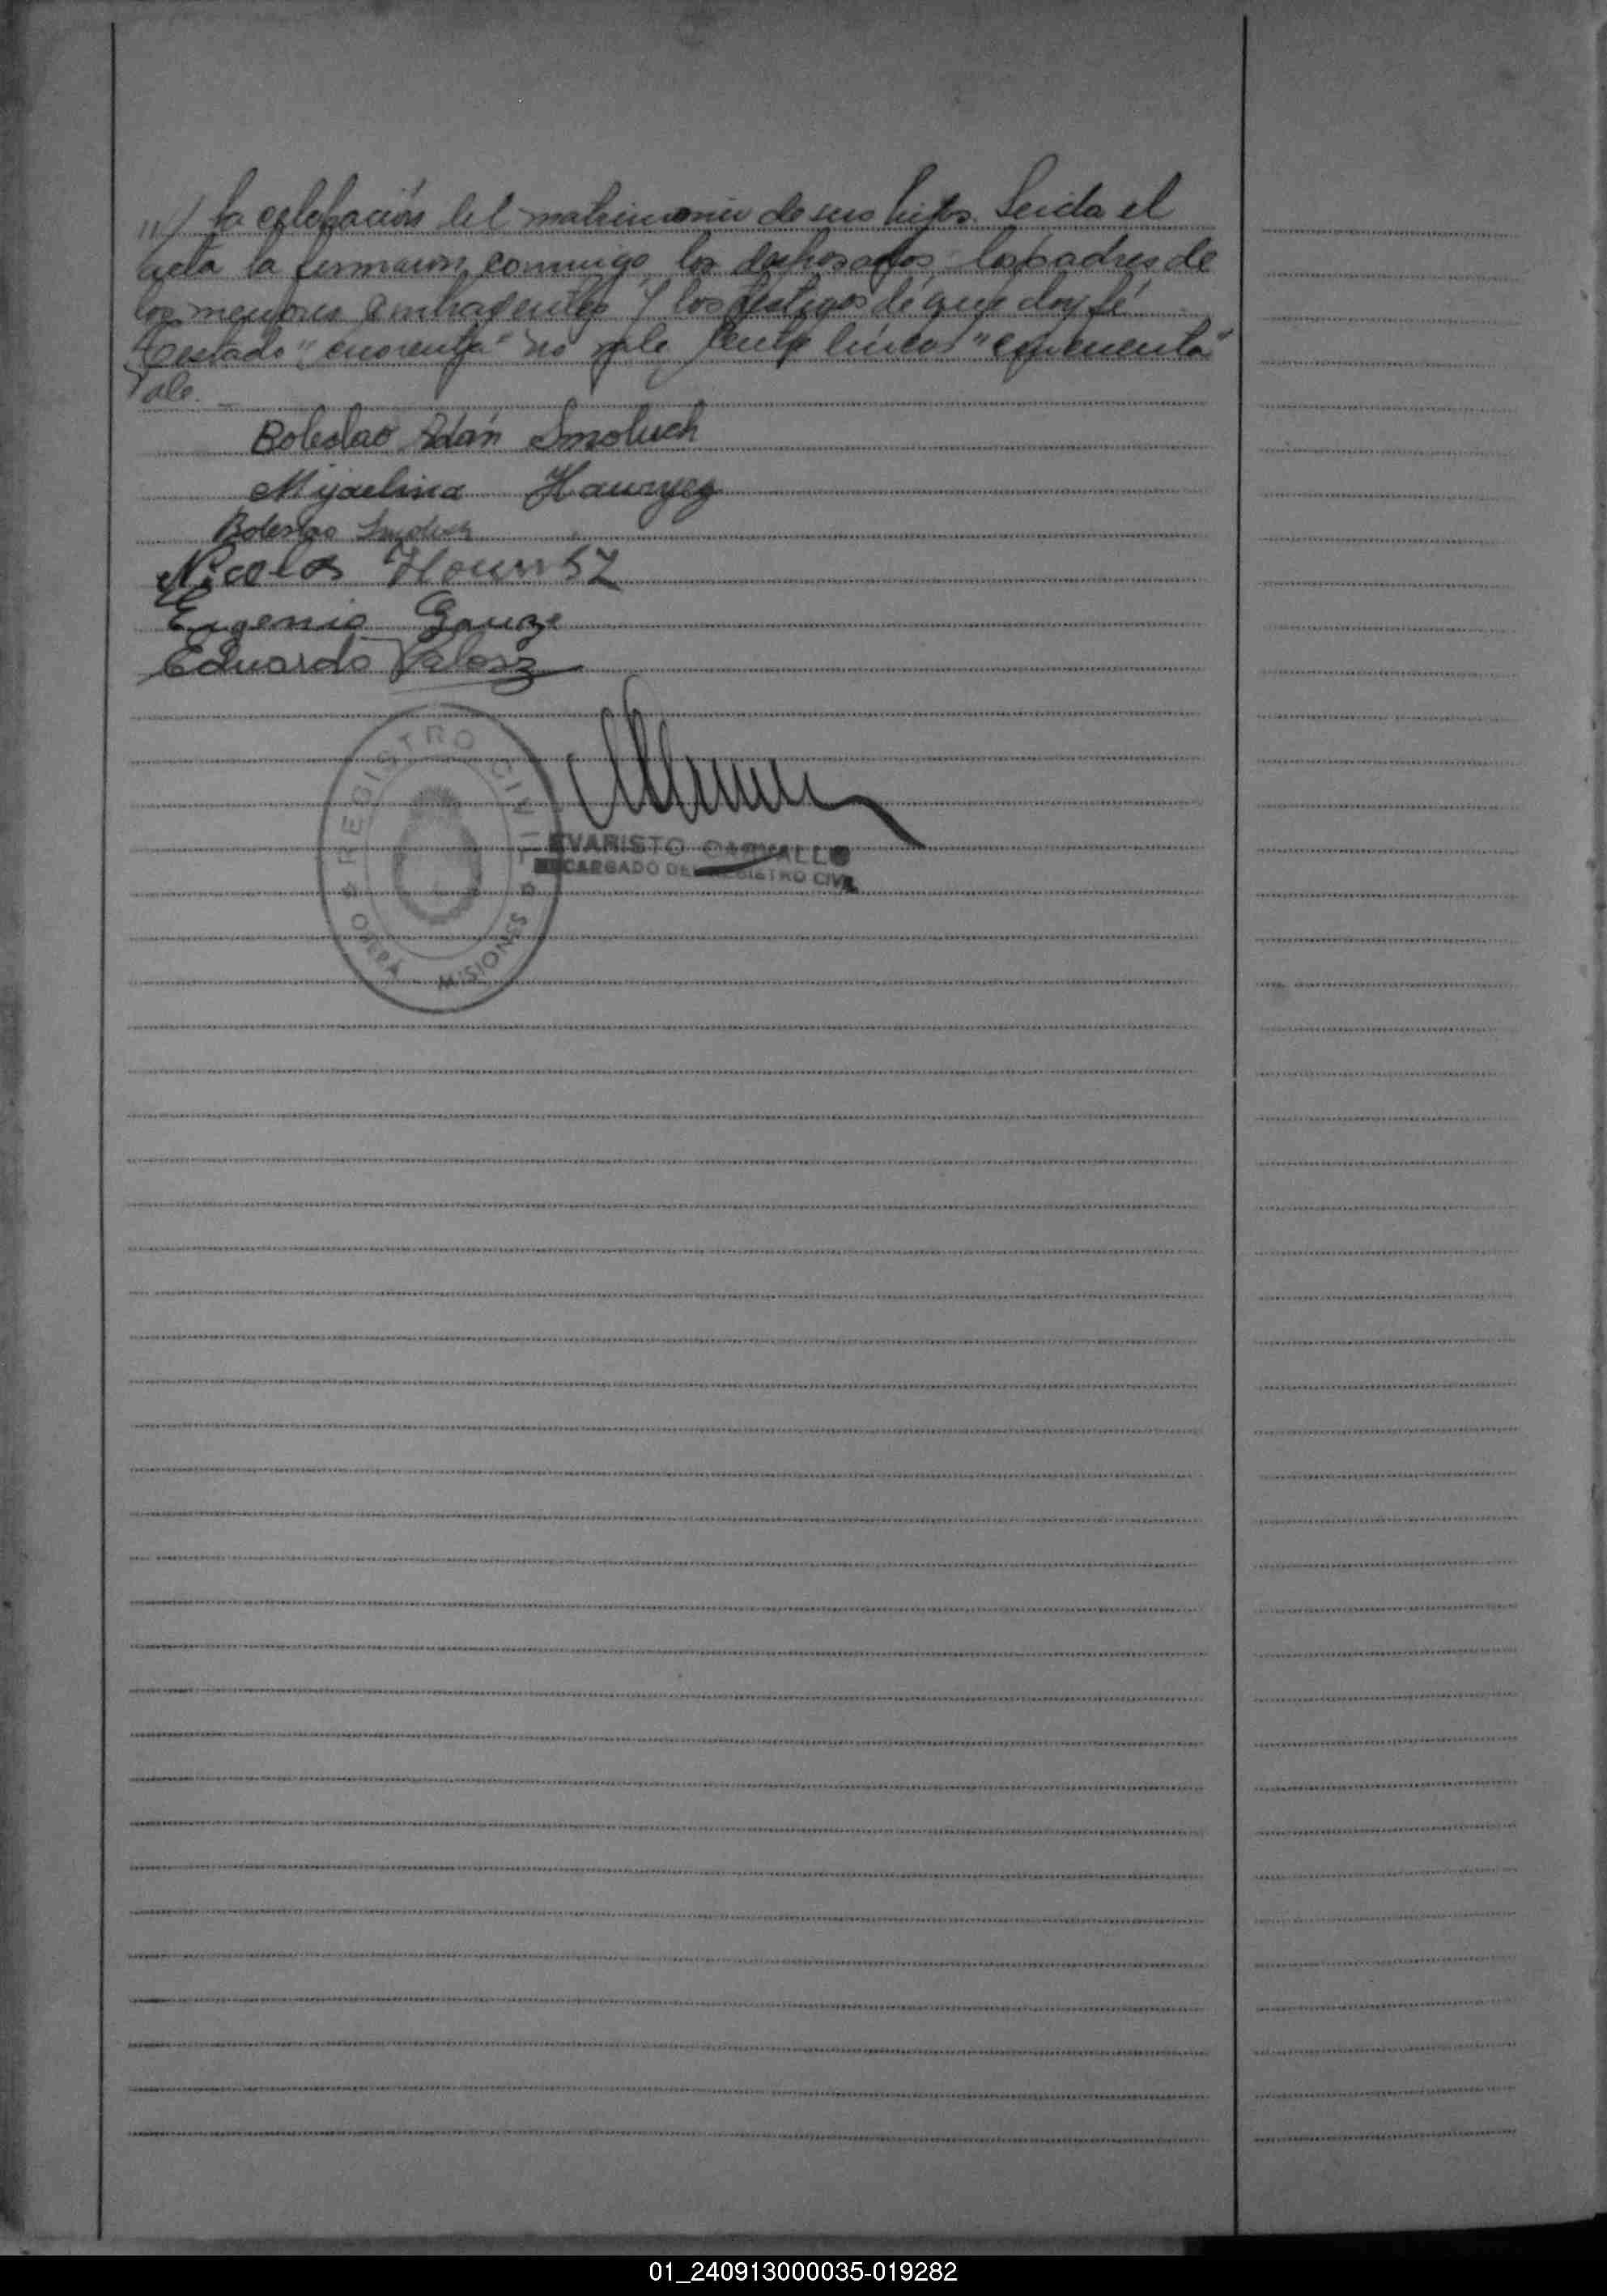 /// la celebración del matrimonio de sus hijos. Leida el
acta la firmaron conmigo, los desposados, los padres de
los menores contrayentes y los testigos de que doy fé
Testado "cuarenta" no vale Entre líneas "cincuenta"
Vale.
Boleslao Adán Smoluch
Mijaelina Hauryez
Boleslao Smoluch
Nicolas
Eugenio
Eduardo Valosz
REGISTRO CIVIL
OBERÁ MISIONES
EVARISTO CARVALLO
ENCARGADO DEL REGISTRO CIVIL
01_240913000035-019282